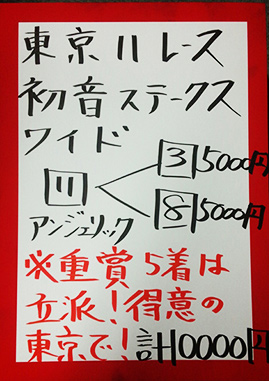 東京11レース
初音ステークス
ワイド
3 5000円
11
8 5000円
アンジェリック
※重賞5着は
立派!得意の
東京で!計10000円